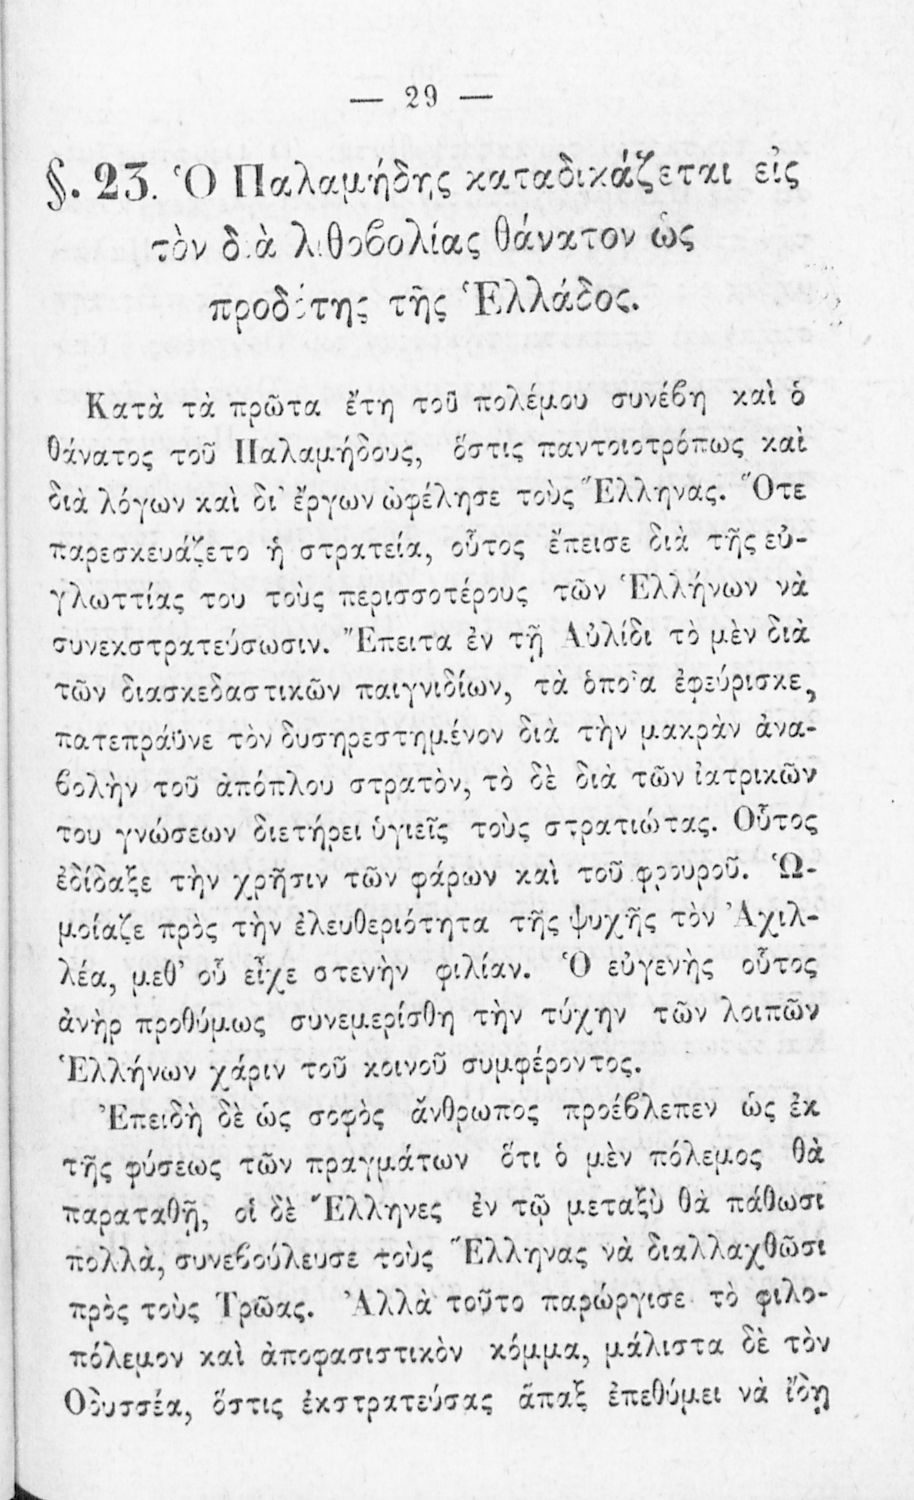 — 29 —
§. 23. Ὁ Παλαμήδης καταδικάζεται εἰς
τὸν διὰ λιθοβολίας θάνατον ὡς
προδότης τῆς Ἑλλάδος.
Κατὰ τὰ πρῶτα ἔτη τοῦ πολέμου συνέβη καὶ ὁ
θάνατος τοῦ Παλαμήδους, ὅστις παντοιοτρόπως καὶ
διὰ λόγων καὶ δι᾽ ἔργων ὠφέλησε τοὺς Ἕλληνας. Ὅτε
παρεσκευάζετο ἡ στρατεία, οὗτος ἔπεισε διὰ τῆς εὐ-
γλωττίας του τοὺς περισσοτέρους τῶν Ἑλλήνων νὰ
συνεκστρατεύσωσιν. Ἔπειτα ἐν τῇ Αὐλίδι τὸ μὲν διὰ
τῶν διασκεδαστικῶν παιγνιδίων, τὰ ὁποῖα ἐφεύρισκε,
πατεπράϋνε τὸν δυσηρεστημένον διὰ τὴν μακρὰν ἀνα-
βολὴν τοῦ ἀπόπλου στρατὸν, τὸ δὲ διὰ τῶν ἰατρικῶν
του γνώσεων διετήρει ὑγιεῖς τοὺς στρατιώτας. Οὗτος
ἐδίδαξε τὴν χρῆσιν τῶν φάρων καὶ τοῦ φρουροῦ. Ὡ-
μοίαζε πρὸς τὴν ἐλευθεριότητα τῆς ψυχῆς τὸν Ἀχιλ-
λέα, μεθ᾽ οὗ εἶχε στενὴν φιλίαν. Ὁ εὐγενὴς οὗτος
ἀνὴρ προθύμως συνεμερίσθη τὴν τύχην τῶν λοιπῶν
Ἑλλήνων χάριν τοῦ κοινοῦ συμφέροντος.
Ἐπειδὴ δὲ ὡς σοφὸς ἄνθρωπος προέβλεπεν ὡς ἐκ
τῆς φύσεως τῶν πραγμάτων ὅτι ὁ μὲν πόλεμος θὰ
παραταθῇ, οἱ δὲ Ἕλληνες ἐν τῷ μεταξὺ θὰ πάθωσι
πολλὰ, συνεβούλευσε τοὺς Ἕλληνας νὰ διαλλαχθῶσι
πρὸς τοὺς Τρῶας. Ἀλλὰ τοῦτο παρώργισε τὸ φιλο-
πόλεμον καὶ ἀποφασιστικὸν κόμμα, μάλιστα δὲ τὸν
Ὀδυσσέα, ὅστις ἐκστρατεύσας ἅπαξ ἐπεθύμει νὰ ἴδῃ